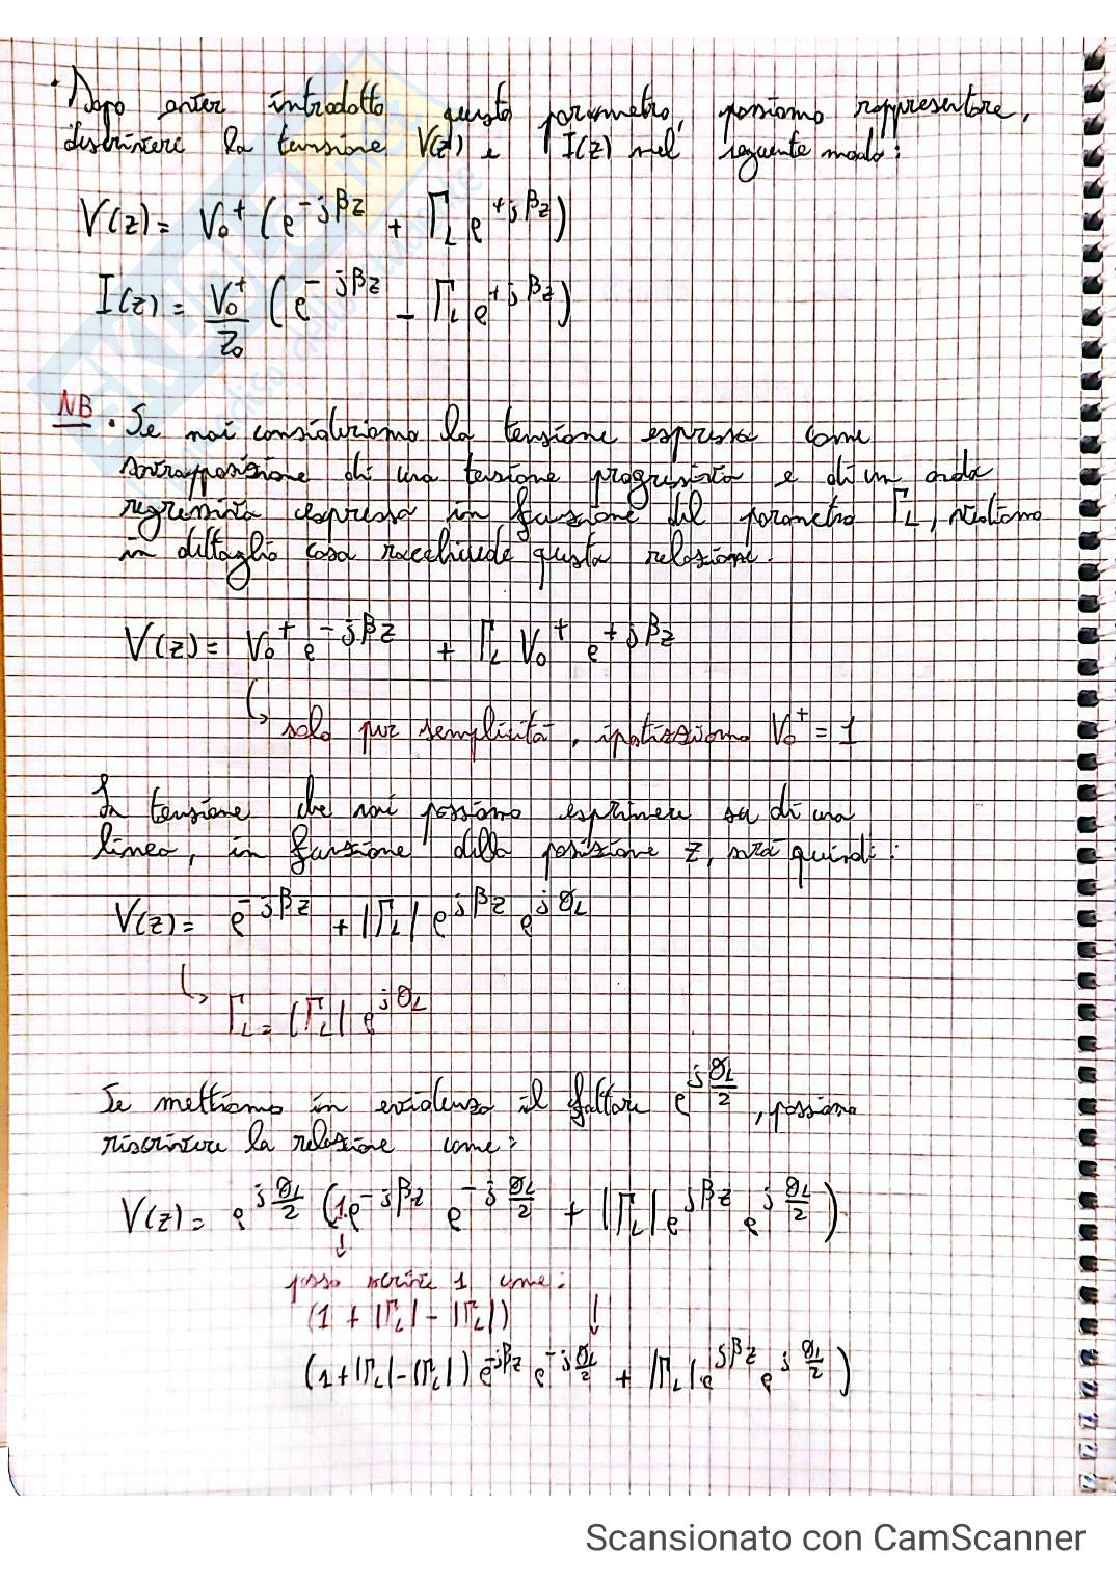 · Dopo aver introdotto questo parametro, possiamo rappresentare,
descrivere la tensione V(z) e I(z) nel seguente modo:
V(z) = V₀⁺ (e^{-jβz} + Γ_L e^{+jβz})
I(z) = V₀⁺/Z₀ (e^{-jβz} - Γ_L e^{+jβz})
NB · Se noi consideriamo la tensione espressa come
sovrapposizione di una tensione progressiva e di un onda
regressiva espressa in funzione del parametro Γ_L, vediamo
in dettaglio cosa racchiude questa relazione.
V(z) = V₀⁺ e^{-jβz} + Γ_L V₀⁺ e^{+jβz}
↳ solo per semplicità, ipotizziamo V₀⁺ = 1
La tensione che noi possiamo esprimere su di una
linea, in funzione della posizione z, sarà quindi:
V(z) = e^{-jβz} + |Γ_L| e^{jβz} e^{jθ_L}
↳ Γ_L = |Γ_L| e^{jθ_L}
Se mettiamo in evidenza il fattore e^{jθ_L/2}, possiamo
riscrivere la relazione come:
V(z) = e^{jθ_L/2} (1·e^{-jβz} e^{-jθ_L/2} + |Γ_L| e^{jβz} e^{jθ_L/2})
↓
posso scrivere 1 come:
(1 + |Γ_L| - |Γ_L|) ↓
(1 + |Γ_L| - |Γ_L|) e^{-jβz} e^{-jθ_L/2} + |Γ_L| e^{jβz} e^{jθ_L/2})
Scansionato con CamScanner